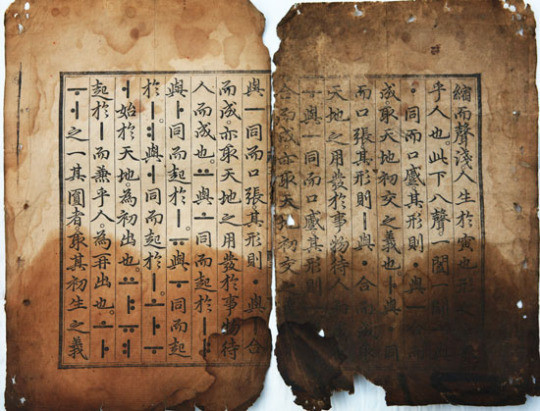 縮而聲淺人生於寅也形之
乎人也此下八聲一闔一
ㆍ同而口蹙其形則ㆍ與ㅡ合而
成取天地初交之義也ㅏ與ㆍ同
而口張其形則ㅣ與ㆍ合而成
天地之用發於事物待人
與ㅡ同而口蹙其形則
合而成亦取天地初交之
與ㅡ同而口張其形則ㆍ與ㅣ合
而成亦取天地之用發於事物待
人而成也ㅛ與ㅗ同而起於ㅣㅑ
與ㅏ同而起於ㅣㅠ與ㅜ同而起
於ㅣㅕ與ㅓ同而起於ㅣㅗㅏㅜ
ㅓ始於天地為初出也ㅛㅑㅠㅕ
起於ㅣ而兼乎人為再出也ㅗㅏ
ㅜㅓ之一其圓者取其初生之義